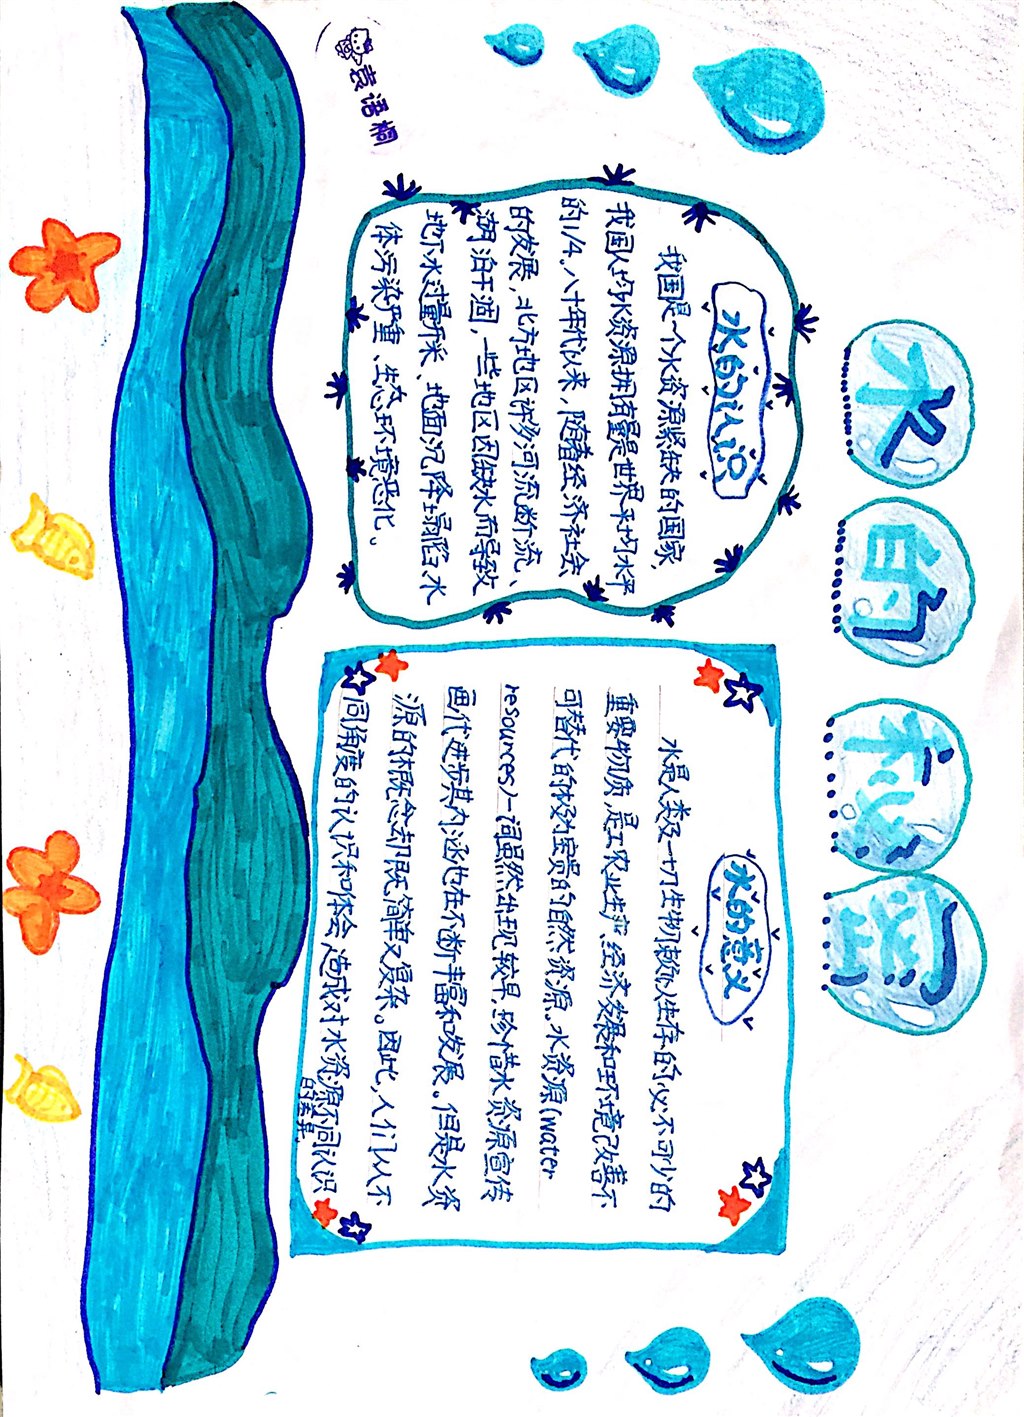 水的秘密
袁语桐
水的认识
我国是一个水资源紧缺的国家,
我国人均水资源拥有量是世界平均水平
的1/4。八十年代以来,随着经济社会
的发展,北方地区许多河流断流、
湖泊干涸,一些地区因缺水而导致
地下水过量开采、地面沉降塌陷、水
体污染严重、生态环境恶化。
水的意义
水是人类及一切生物赖以生存的必不可少的
重要物质,是工农业生产、经济发展和环境改善不
可替代的极为宝贵的自然资源。水资源(water
resources)一词虽然出现较早,珍惜水资源宣传
画代进步其内涵也在不断丰富和发展。但是水资
源的概念却既简单又复杂。因此,人们从不
同角度的认识和体会,造成对水资源不同认识
的差异。